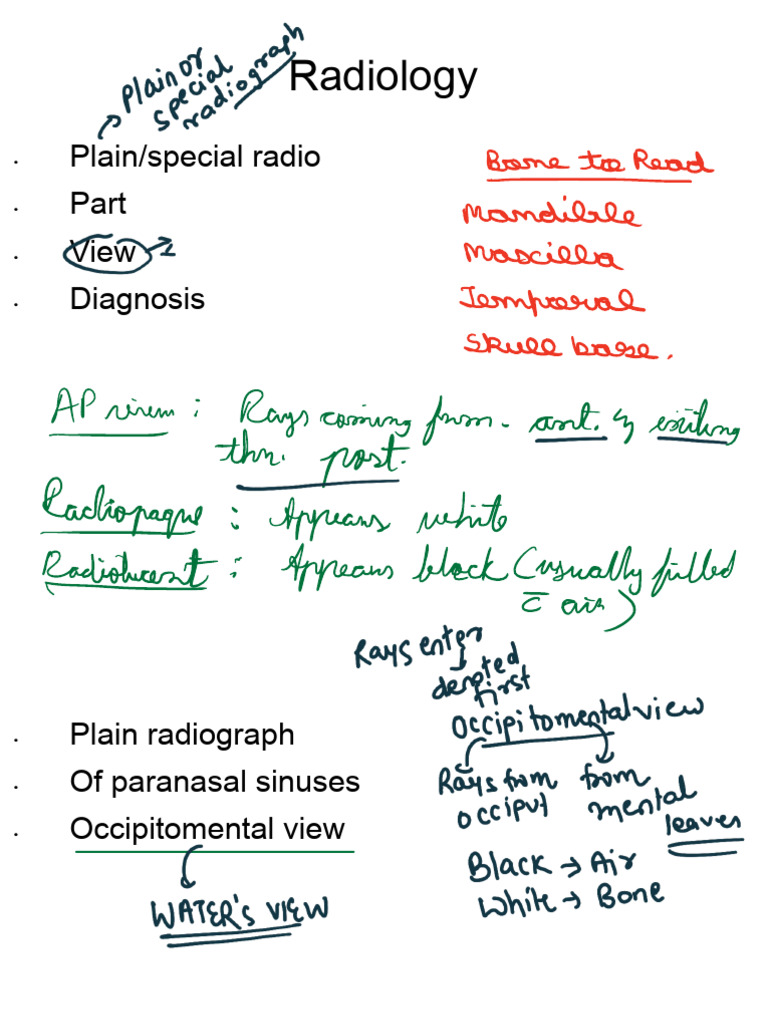 Radiology
Plain or
special
radiograph
· Plain/special radio
· Part
· View
· Diagnosis
Bone to Read
Mandible
Maxilla
Temporal
Skull base.
AP view : Rays coming from ant. & exiting
thr. post.
Radiopaque : Appears white
Radiolucent : Appears black (usually filled
c̄ air)
Rays enter
denoted
first
Occipitomental view
Rays from
occiput
from
mental
leaves
· Plain radiograph
· Of paranasal sinuses
· Occipitomental view
Black → Air
White → Bone
WATER's VIEW